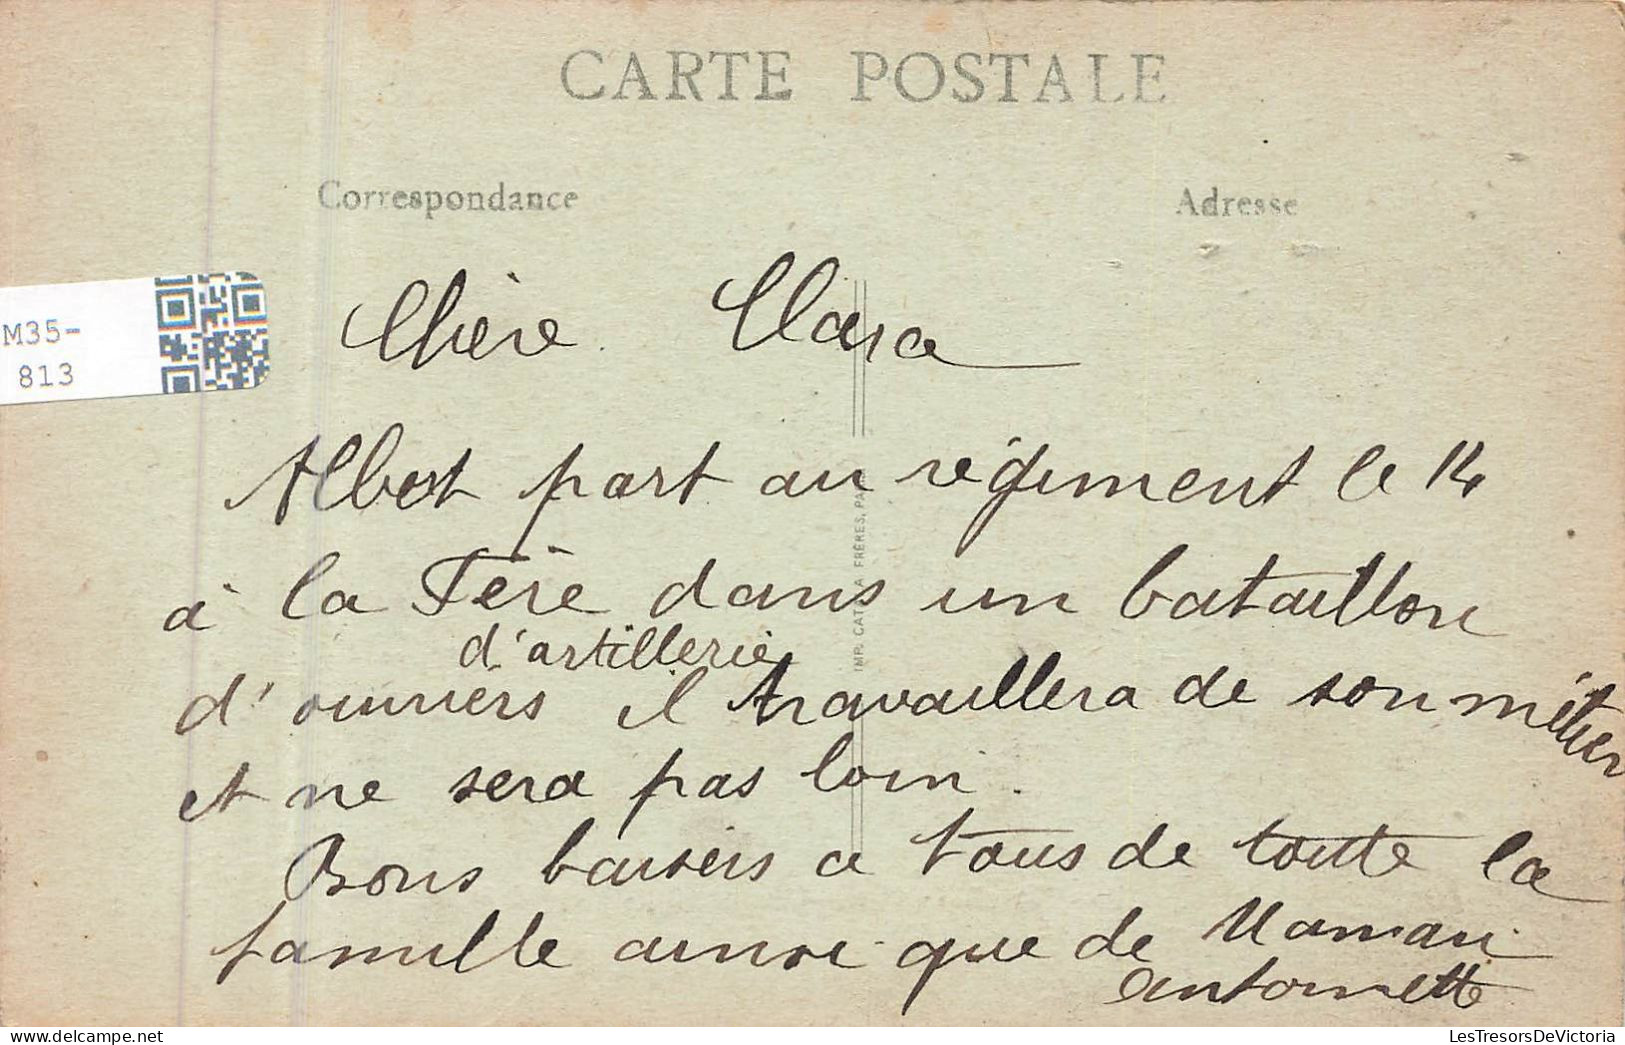 CARTE POSTALE
Correspondance
Adresse
M35-
813
Chère Clara
Albert part au régiment le 14
à la Fère dans un bataillon
d'artillerie
d'ouvriers il travaillera de son métier
et ne sera pas loin.
Bons baisers a tous de toute la
famille ainsi que de Maman
Antoinette
IMP. CATALA FRÈRES, PA
LesTresorsDeVictoria.com